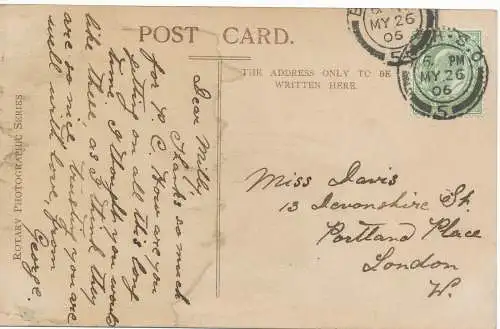 POST CARD.
THE ADDRESS ONLY TO BE
WRITTEN HERE.
ROTARY PHOTOGRAPHIC SERIES
6. PM
MY 26
06
5
MY 26
06
Dear Milli,
Thanks so much
for p. C. How are you
getting on all this long
time. I thought you would
like these, as I think they
are so nice, trusting you are
well with love, from
George.
Miss Davis
13 Devonshire St.
Portland Place
London
W.